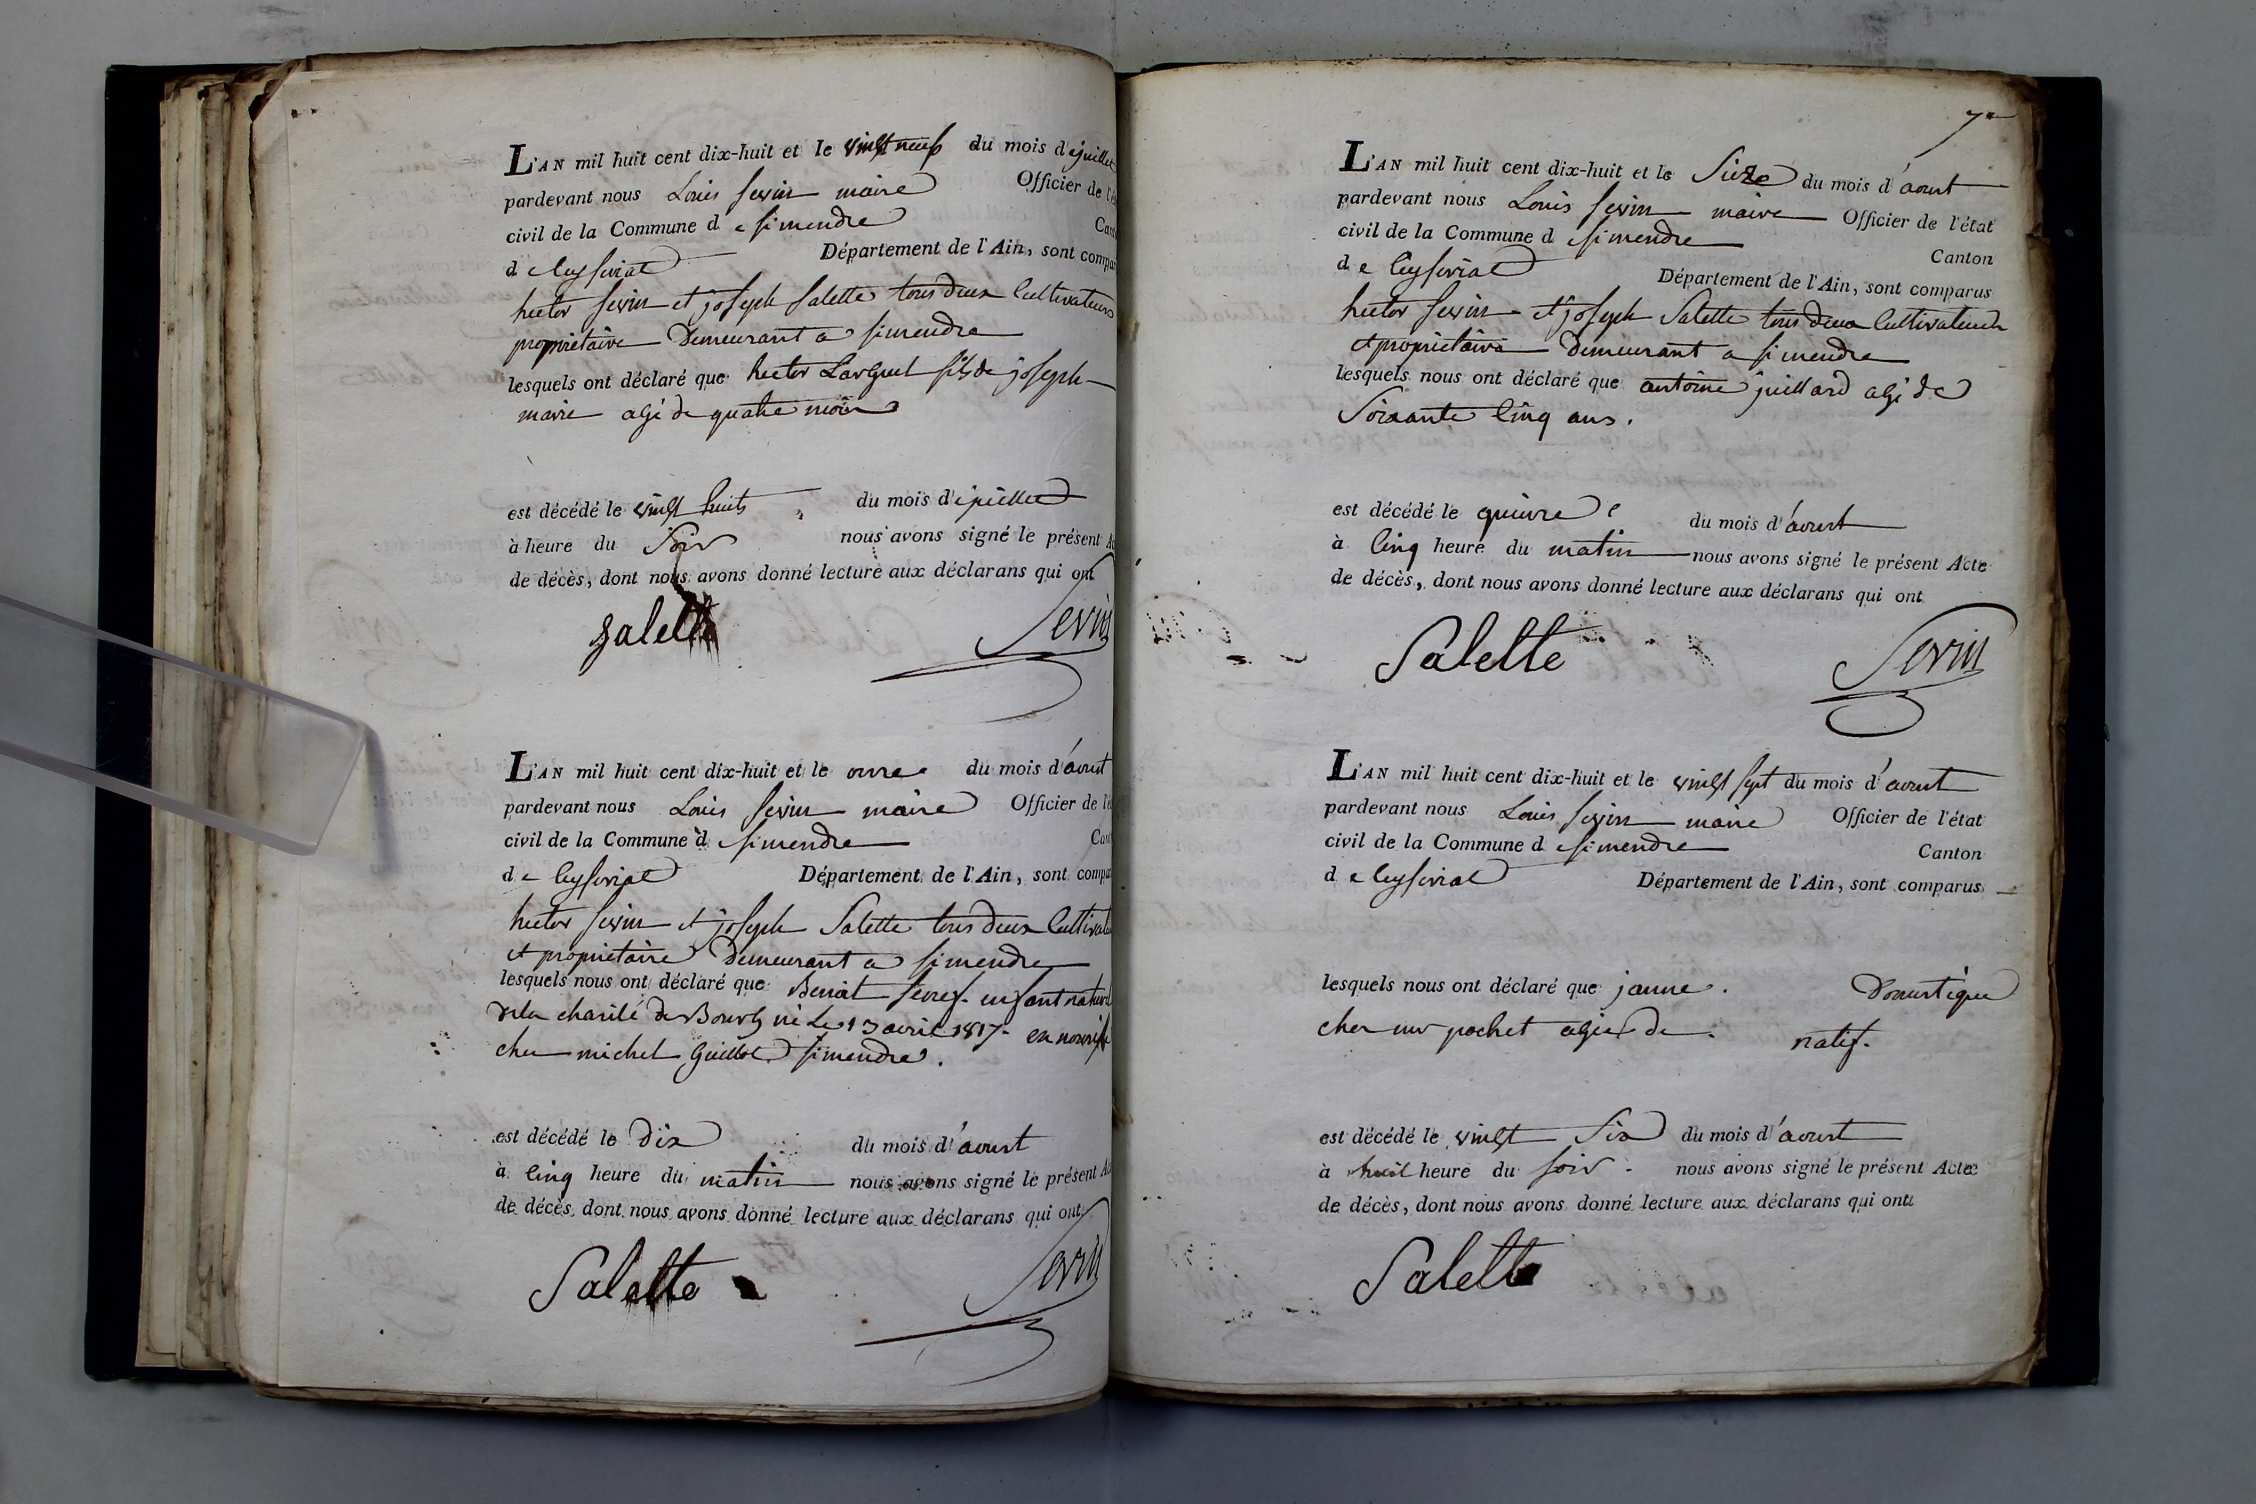 L'AN mil huit cent dix-huit et le vingt neuf du mois d ejuillet
pardevant nous Louis sevin maire Officier de l'é
civil de la Commune d e simendre Cant
d e Ceyseriat Département de l'Ain, sont compar
hector sevin et joseph salette tous deux Cultivateurs
propriétaire Demeurant a simendre
lesquels ont déclaré que hector fils de joseph
marie agé de quatre mois
est décédé le vingt huit du mois d'ejuillet
à heure du Soir nous avons signé le présent A
de décès, dont nous avons donné lecture aux déclarans qui ont
Salette Sevin
L'AN mil huit cent dix-huit et le onze du mois d'aoust
pardevant nous Louis sevin maire Officier de l'é
civil de la Commune d e simendre Can
d e Ceyseriat Département de l'Ain, sont compa
hector sevin et joseph Salette tous deux Cultivat
et propriétaire Demeurant a simendre
lesquels nous ont déclaré que Benoit enfant naturel
de la charité de Bourg né Le 13 avril 1817 en
chez michel Guillot simendre.
est décédé le Dix du mois d'aoust
à Cinq heure du matin nous avons signé le présent Ac
de décès, dont nous avons donné lecture aux déclarans qui ont
Salette Sevin
7
L'AN mil huit cent dix-huit et le Sieze du mois d'aoust
pardevant nous Louis sevin maire Officier de l'état
civil de la Commune d e simendre Canton
d e Ceyseriat Département de l'Ain, sont comparus
hector sevin et joseph Salette tous deux Cultivateurs
et propriétaire Demeurant a simendre
lesquels nous ont déclaré que antoine juillard agé de
Soixante Cinq ans.
est décédé le quinze du mois d'aoust
à Cinq heure du matin nous avons signé le présent Acte
de décès, dont nous avons donné lecture aux déclarans qui ont
Salette Sevin
L'AN mil huit cent dix-huit et le vingt sept du mois d'aoust
pardevant nous Louis sevin maire Officier de l'état
civil de la Commune d e simendre Canton
d e Ceyseriat Département de l'Ain, sont comparus
lesquels nous ont déclaré que janne. Domestique
chez mr pochet agée de natif.
est décédé le vingt Six du mois d'aoust
à huit heure du soir nous avons signé le présent Acte
de décès, dont nous avons donné lecture aux déclarans qui ont
Salette